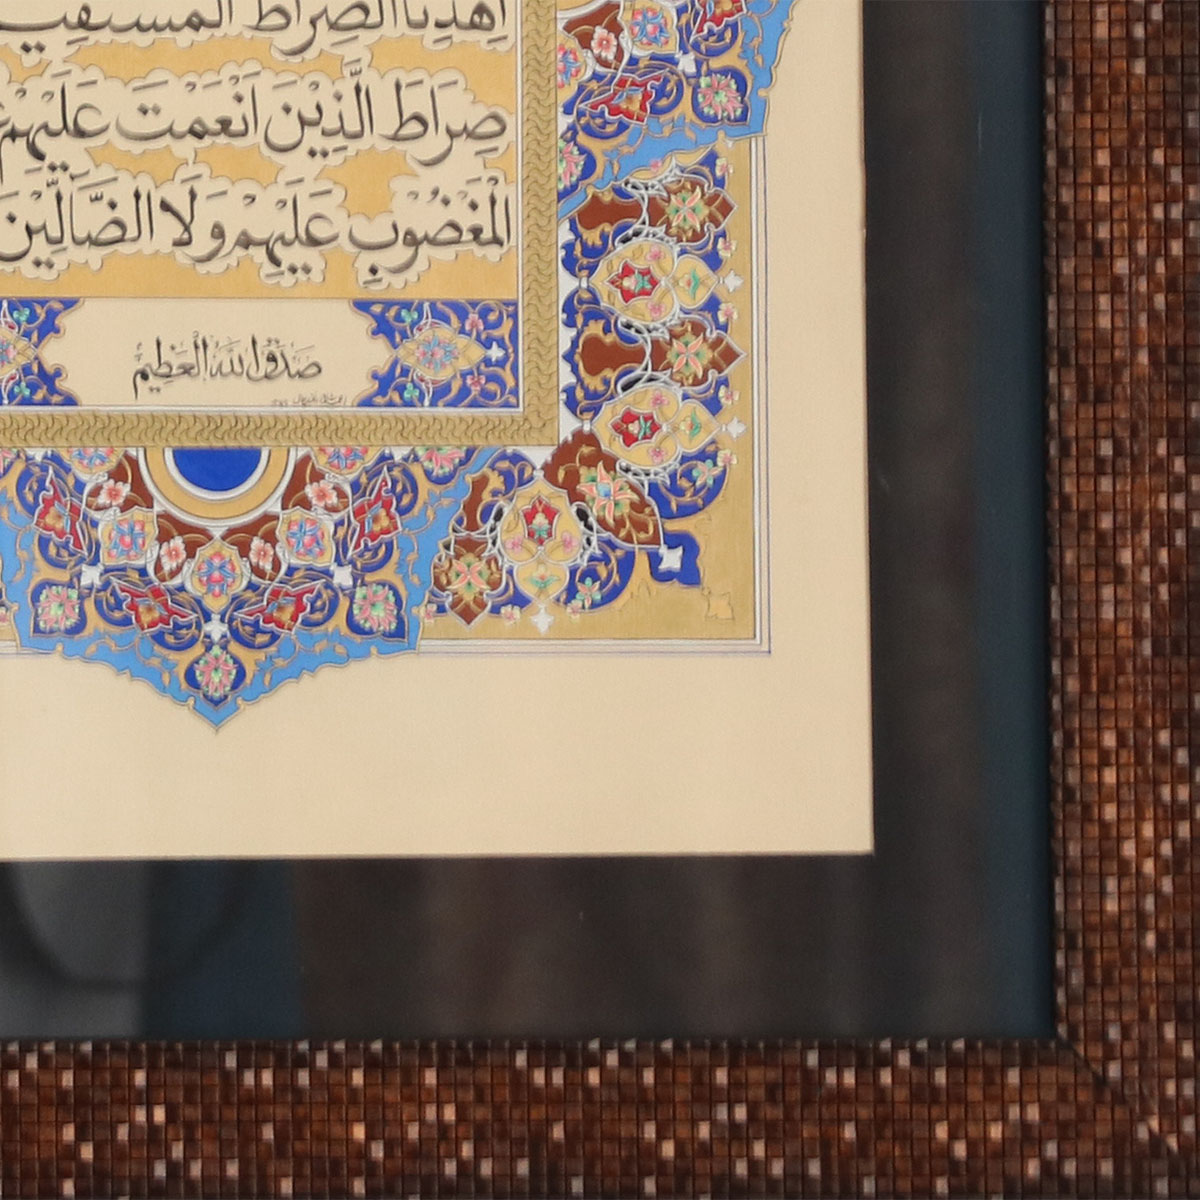 اِهْدِنَا الصِّرَاطَ الْمُسْتَقِيمَ
صِرَاطَ الَّذِيْنَ اَنْعَمْتَ عَلَيْهِمْ
الْمَغْضُوْبِ عَلَيْهِمْ وَلَا الضَّآلِّيْنَ
صَدَقَ اللهُ الْعَظِيْمُ